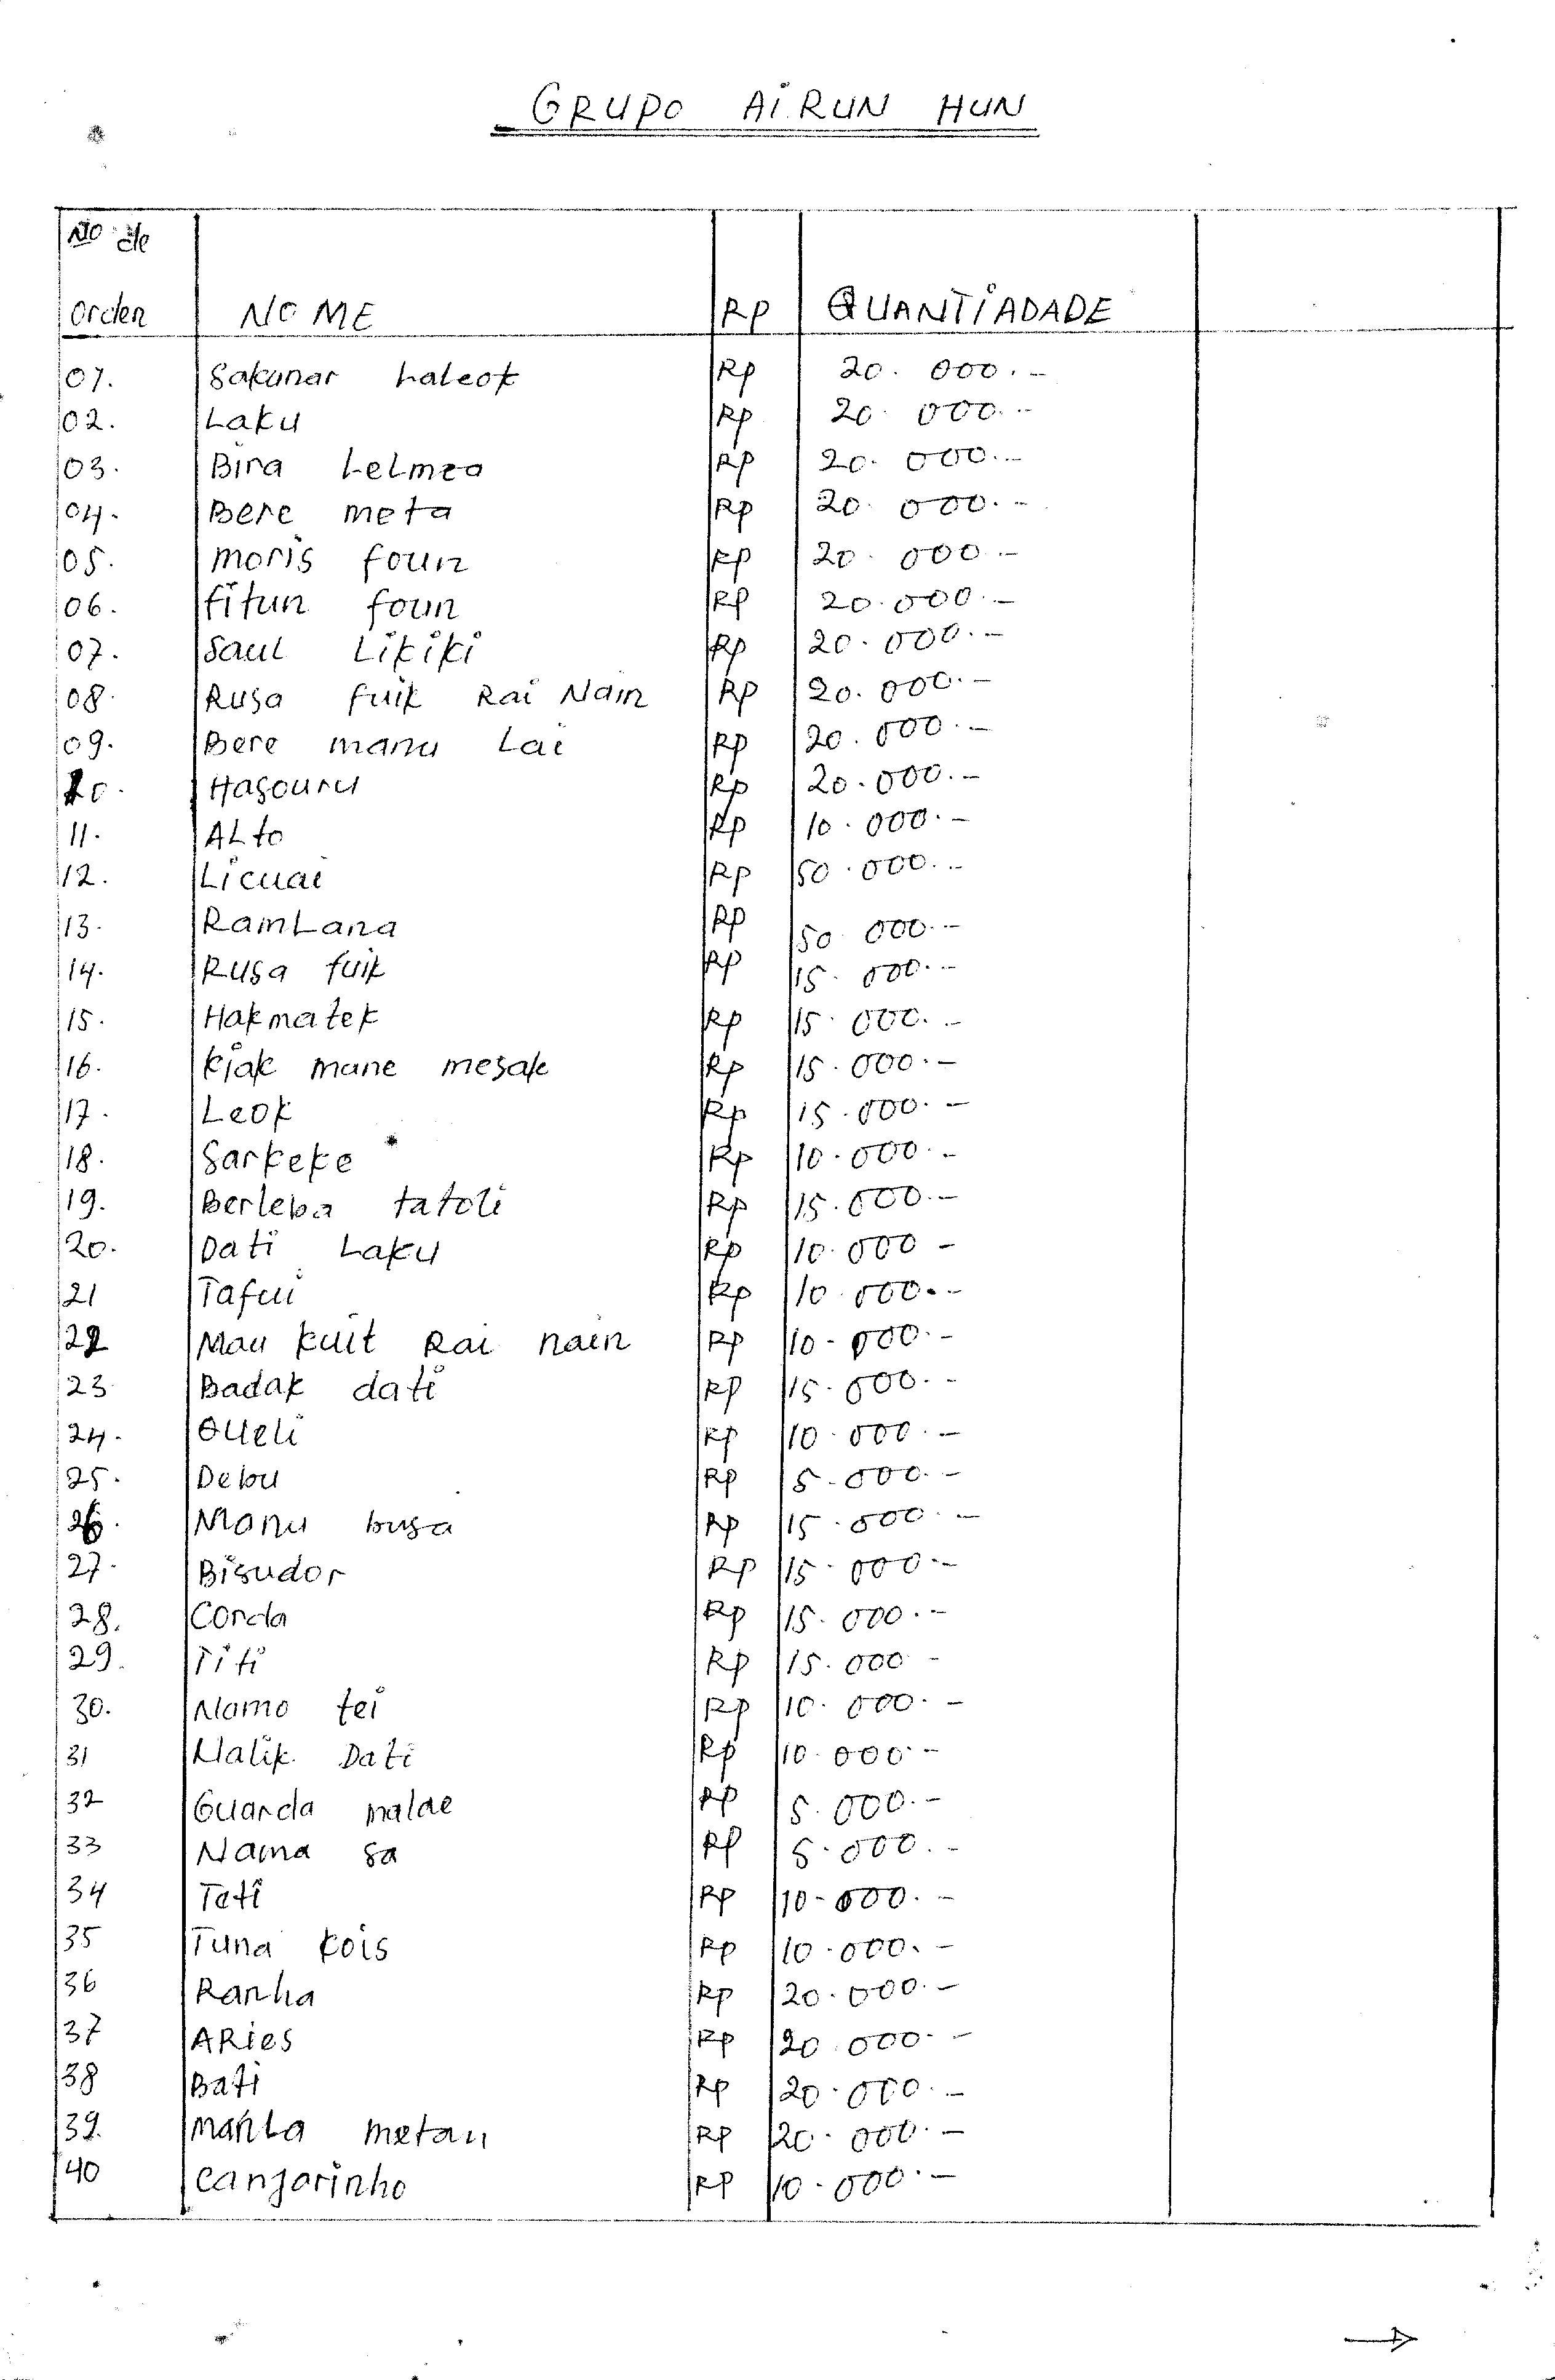 GRUPO AIRUN HUN
No de
Orden NOME RP QUANTIADADE
01. Sakunar Laleok Rp 20.000.-
02. Laku Rp 20.000.-
03. Bira Lelmea Rp 20.000.-
04. Bere meta Rp 20.000.-
05. moris foun Rp 20.000.-
06. fitun foun Rp 20.000.-
07. Saul Likiki Rp 20.000.-
08. Rusa fuik Rai Nain Rp 20.000.-
09. Bere manu Lai Rp 20.000.-
10. Hasouru Rp 20.000.-
11. ALto Rp 10.000.-
12. Licuai Rp 50.000.-
13. RamLana Rp 50.000.-
14. Rusa fuik Rp 15.000.-
15. Hakmatek Rp 15.000.-
16. kiak mane mesak Rp 15.000.-
17. Leok Rp 15.000.-
18. Sarkeke Rp 10.000.-
19. Berleba tatoli Rp 15.000.-
20. Dati Laku Rp 10.000-
21 Tafui Rp 10.000.-
22 Mau kuit Rai nain Rp 10.000.-
23 Badak dati Rp 15.000.-
24. Oueli Rp 10.000.-
25. Debu Rp 5.000.-
26. Manu busa Rp 15.000.-
27. Bisudor Rp 15.000.-
28. Corda Rp 15.000.-
29. Titi Rp 15.000-
30. Namo tei Rp 10.000.-
31 Malik Dati Rp 10.000.-
32 Guarda malae Rp 5.000.-
33 Nama sa Rp 5.000.-
34 Teti Rp 10.000.-
35 Tuna kois Rp 10.000.-
36 Ranha Rp 20.000.-
37 ARies Rp 20.000.-
38 Bati Rp 20.000.-
39. manLa metan Rp 20.000.-
40 canjarinho Rp 10.000.-